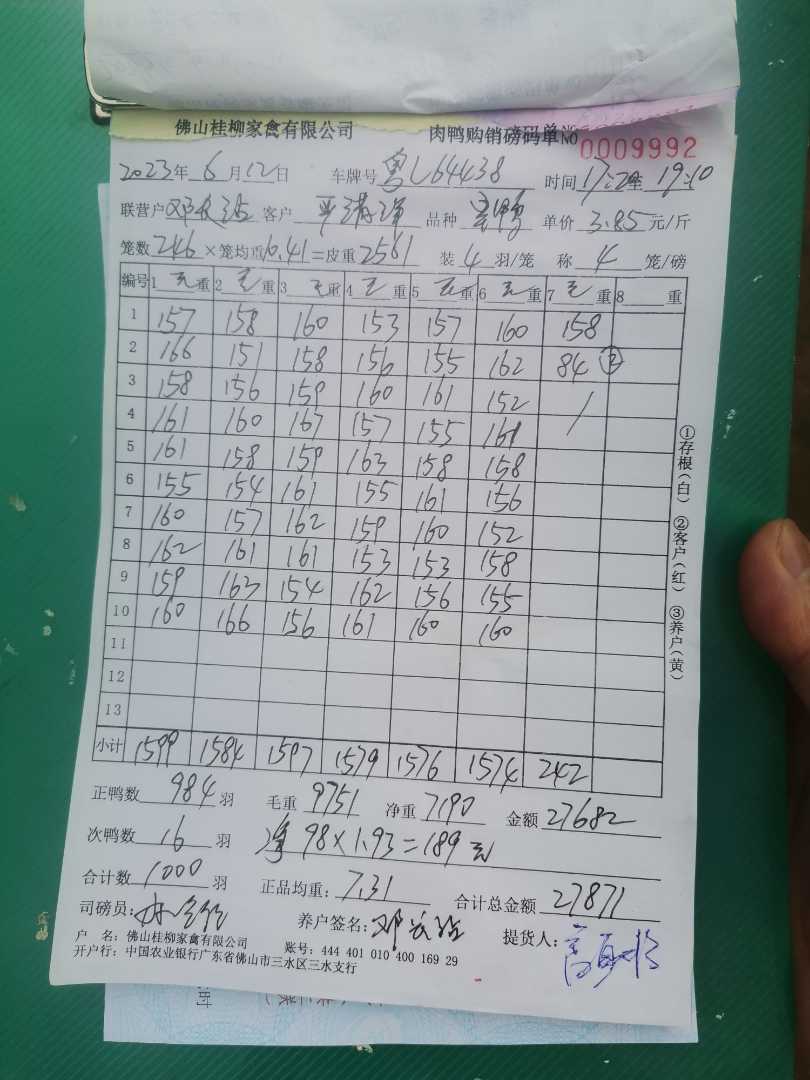 佛山桂柳家禽有限公司 肉鸭购销磅码单 No 0009992
2023年6月12日 车牌号 粤L64438 时间 17:20至19:10
联营户 客户 品种 单价 3.85 元/斤
笼数 246 ×笼均重 10.41 =皮重 2561 装 4 羽/笼 称 4 笼/磅
编号 1 毛重 2 毛重 3 毛重 4 毛重 5 毛重 6 毛重 7 毛重 8 重
1 157 158 160 153 157 160 158
2 166 151 158 156 155 162 84 ②
3 158 156 159 160 161 152 /
4 161 160 167 157 155 161 /
5 161 158 159 163 158 158
6 155 154 161 155 161 156
7 160 157 162 159 160 152
8 162 161 161 153 153 158
9 159 163 154 162 156 155
10 160 166 156 161 160 160
11
12
13
小计 1599 1584 1597 1579 1576 1574 242
正鸭数 984 羽 毛重 9751 净重 7190 金额 27682
次鸭数 16 羽 净 98×1.93=189元
合计数 1000 羽 正品均重: 7.31 合计总金额 27871
司磅员: 养户签名: 提货人:
户 名: 佛山桂柳家禽有限公司 账号: 444 401 010 400 169 29
开户行: 中国农业银行广东省佛山市三水区三水支行
①存根(白) ②客户(红) ③养户(黄)